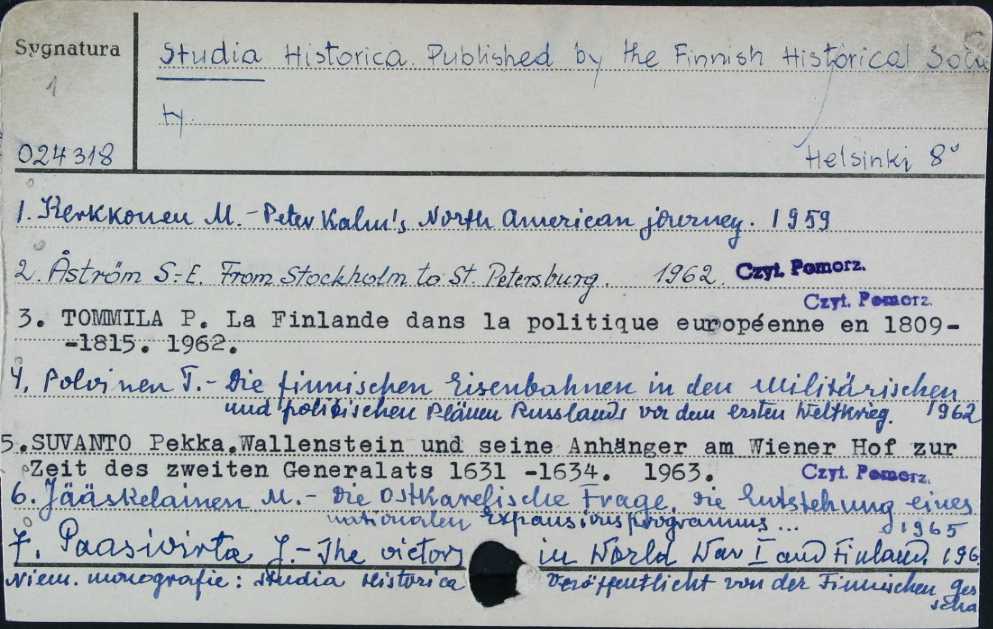 Sygnatura
1
024318
Studia Historica. Published by the Finnish Historical Socie
ty.
Helsinki 8°
1. Kerkkonen M. - Peter Kalm's North American journey. 1959
2. Åström S.-E. From Stockholm to St. Petersburg. 1962. Czyt. Pomorz.
Czyt. Pomorz.
3. TOMMILA P. La Finlande dans la politique européenne en 1809-
-1815. 1962.
4. Polvinen T. - Die finnischen Eisenbahnen in den militärischen
und politischen Plänen Russlands vor dem ersten Weltkrieg. 1962
5. SUVANTO Pekka. Wallenstein und seine Anhänger am Wiener Hof zur
Zeit des zweiten Generalats 1631 -1634. 1963. Czyt. Pomorz.
6. Jääskelainen M. - Die Ostkarelische Frage. Die Entstehung eines
nationalen Expansionsprogramms ... 1965
7. Paasivirta J. - The victory in World War I and Finland 196
Niem. monografie: Studia Historica Veröffentlicht von der Finnischen Ges
scha